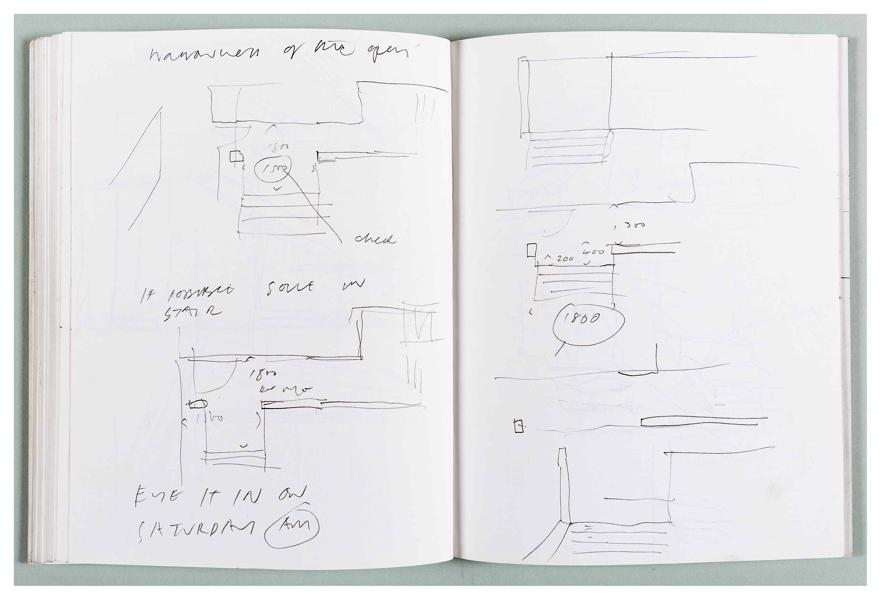 narrowness of the open
1800
1500
check
IF POSSIBLE SOLVE IN
STAIR
1800
1500
EYE IT IN ON
SATURDAY AM
1300
200 400
1800